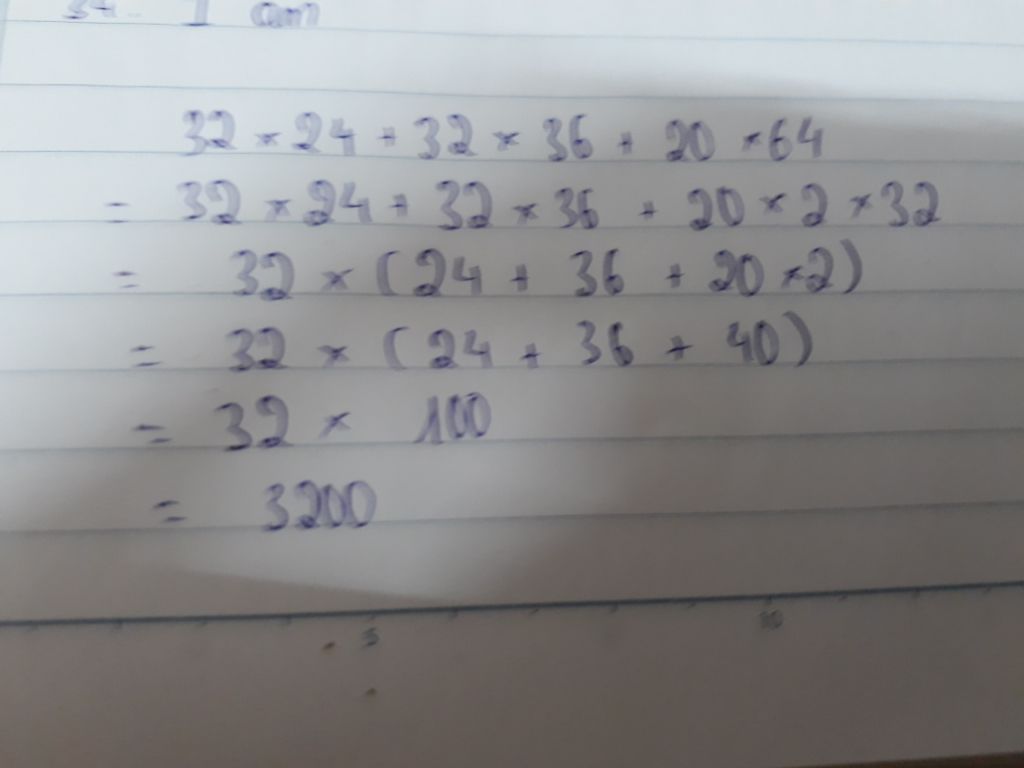 I am
32 × 24 + 32 × 36 + 20 × 64
= 32 × 24 + 32 × 36 + 20 × 2 × 32
= 32 × (24 + 36 + 20 × 2)
= 32 × (24 + 36 + 40)
= 32 × 100
= 3200
5 10